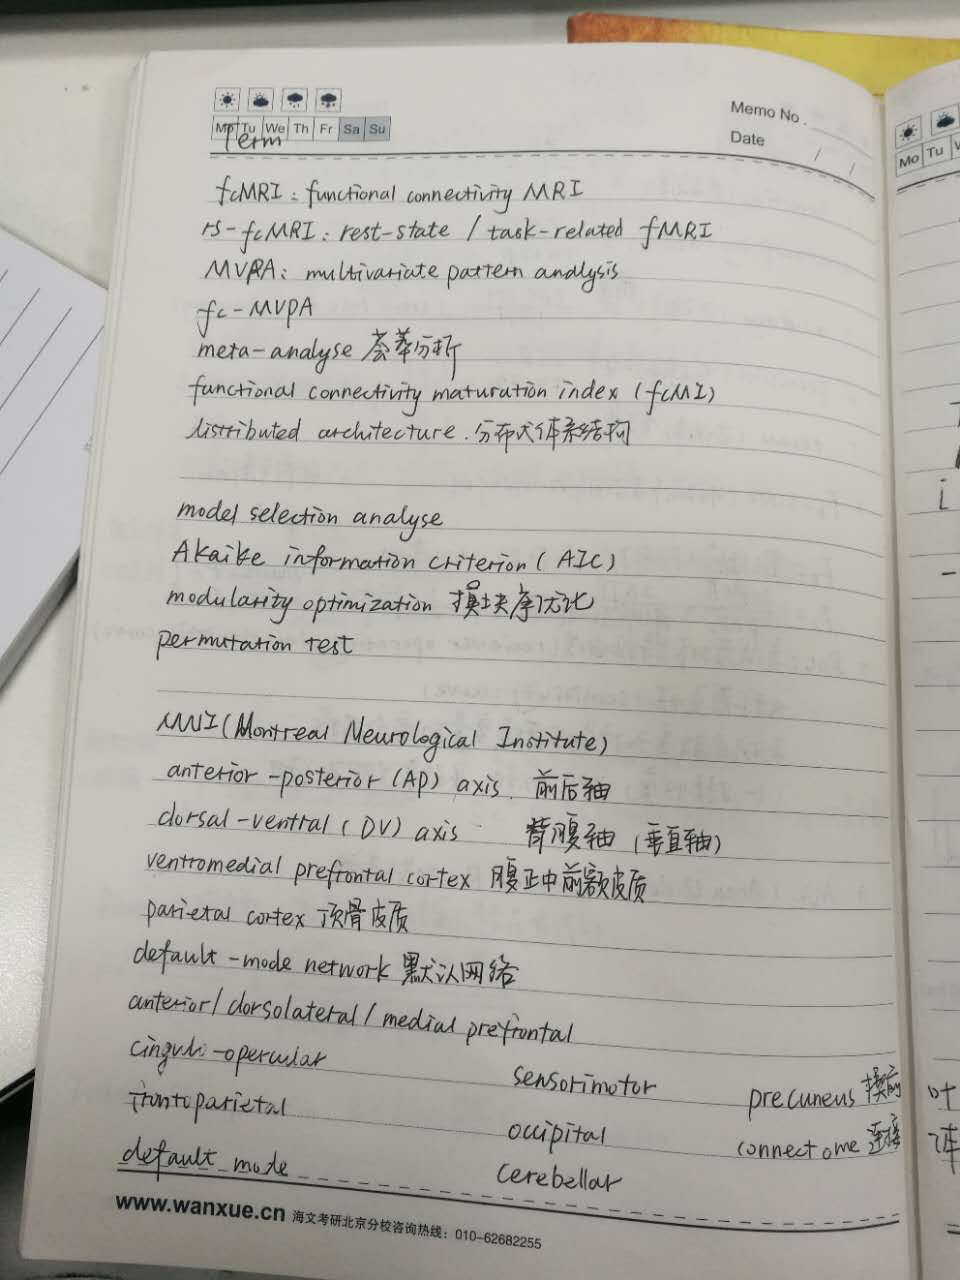 Mo Tu We Th Fr Sa Su
Memo No.
Date / /
Term
fcMRI: functional connectivity MRI
rs-fcMRI: rest-state / task-related fMRI
MVPA: multivariate pattern analysis
fc-MVPA
meta-analyse 荟萃分析
functional connectivity maturation index (fcMI)
distributed architecture. 分布式体系结构
model selection analyse
Akaike information criterion (AIC)
modularity optimization 模块度优化
permutation test
MNI (Montreal Neurological Institute)
anterior-posterior (AP) axis. 前后轴
dorsal-ventral (DV) axis 背腹轴 (垂直轴)
ventromedial prefrontal cortex 腹正中前额皮质
parietal cortex 顶骨皮质
default-mode network 默认网络
anterior/dorsolateral/medial prefrontal
cingulo-opercular
sensorimotor
precuneus
frontoparietal
occipital
connectome 连接
default mode
cerebellar
www.wanxue.cn 海文考研北京分校咨询热线：010-62682255
Mo Tu